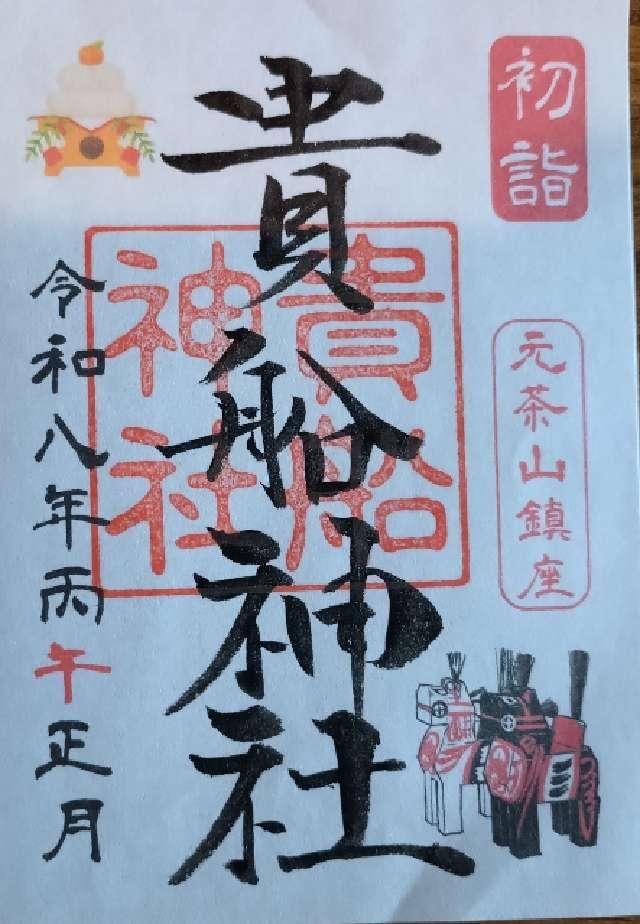 初詣
元茶山鎮座
貴船神社
貴船
神社
令和八年丙午正月